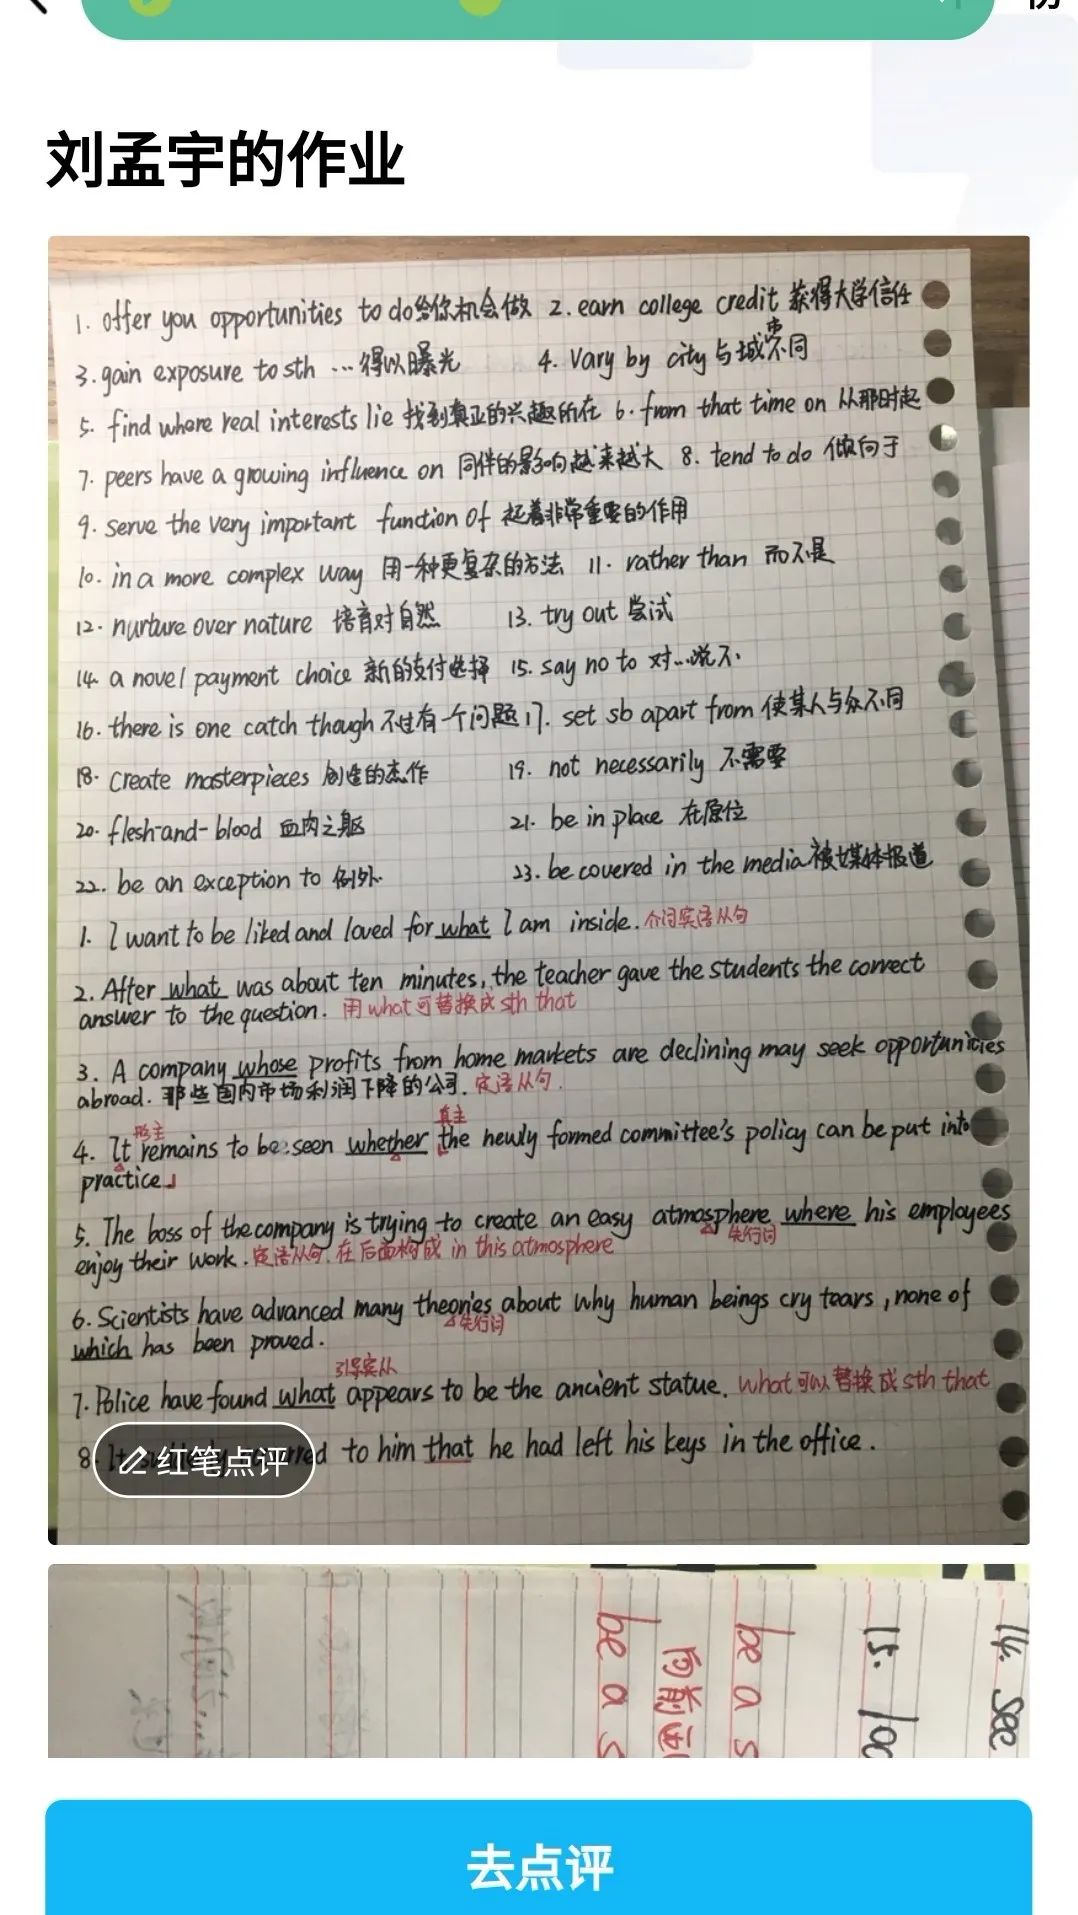 刘孟宇的作业
1. offer you opportunities to do给你机会做 2. earn college credit 获得大学信任
3. gain exposure to sth ...得以曝光 4. Vary by city 与城市不同
5. find where real interests lie 找到真正的兴趣所在 6. from that time on 从那时起
7. peers have a growing influence on 同伴的影响越来越大 8. tend to do 倾向于
9. serve the very important function of 起着非常重要的作用
10. in a more complex way 用一种更复杂的方法 11. rather than 而不是
12. nurture over nature 培育对自然 13. try out 尝试
14. a novel payment choice 新的支付选择 15. say no to 对...说不
16. there is one catch though 不过有一个问题 17. set sb apart from 使某人与众不同
18. create masterpieces 创造的杰作 19. not necessarily 不需要
20. flesh-and-blood 血肉之躯 21. be in place 在原位
22. be an exception to 例外 23. be covered in the media 被媒体报道
1. I want to be liked and loved for what I am inside. 介词宾语从句
2. After what was about ten minutes, the teacher gave the students the correct
answer to the question. 用what可替换成sth that
3. A company whose profits from home markets are declining may seek opportunities
abroad. 那些国内市场利润下降的公司. 定语从句.
形主 真主
4. It remains to be seen whether the newly formed committee's policy can be put into
practice.
5. The boss of the company is trying to create an easy atmosphere where his employees
先行词
enjoy their work. 定语从句. 在后面构成 in this atmosphere
6. Scientists have advanced many theories about why human beings cry tears, none of
先行词
which has been proved.
引导宾从
7. Police have found what appears to be the ancient statue. what可以替换成sth that
8. It to him that he had left his keys in the office.
红笔点评
14. see
15.
be a s
向前
be a s
去点评